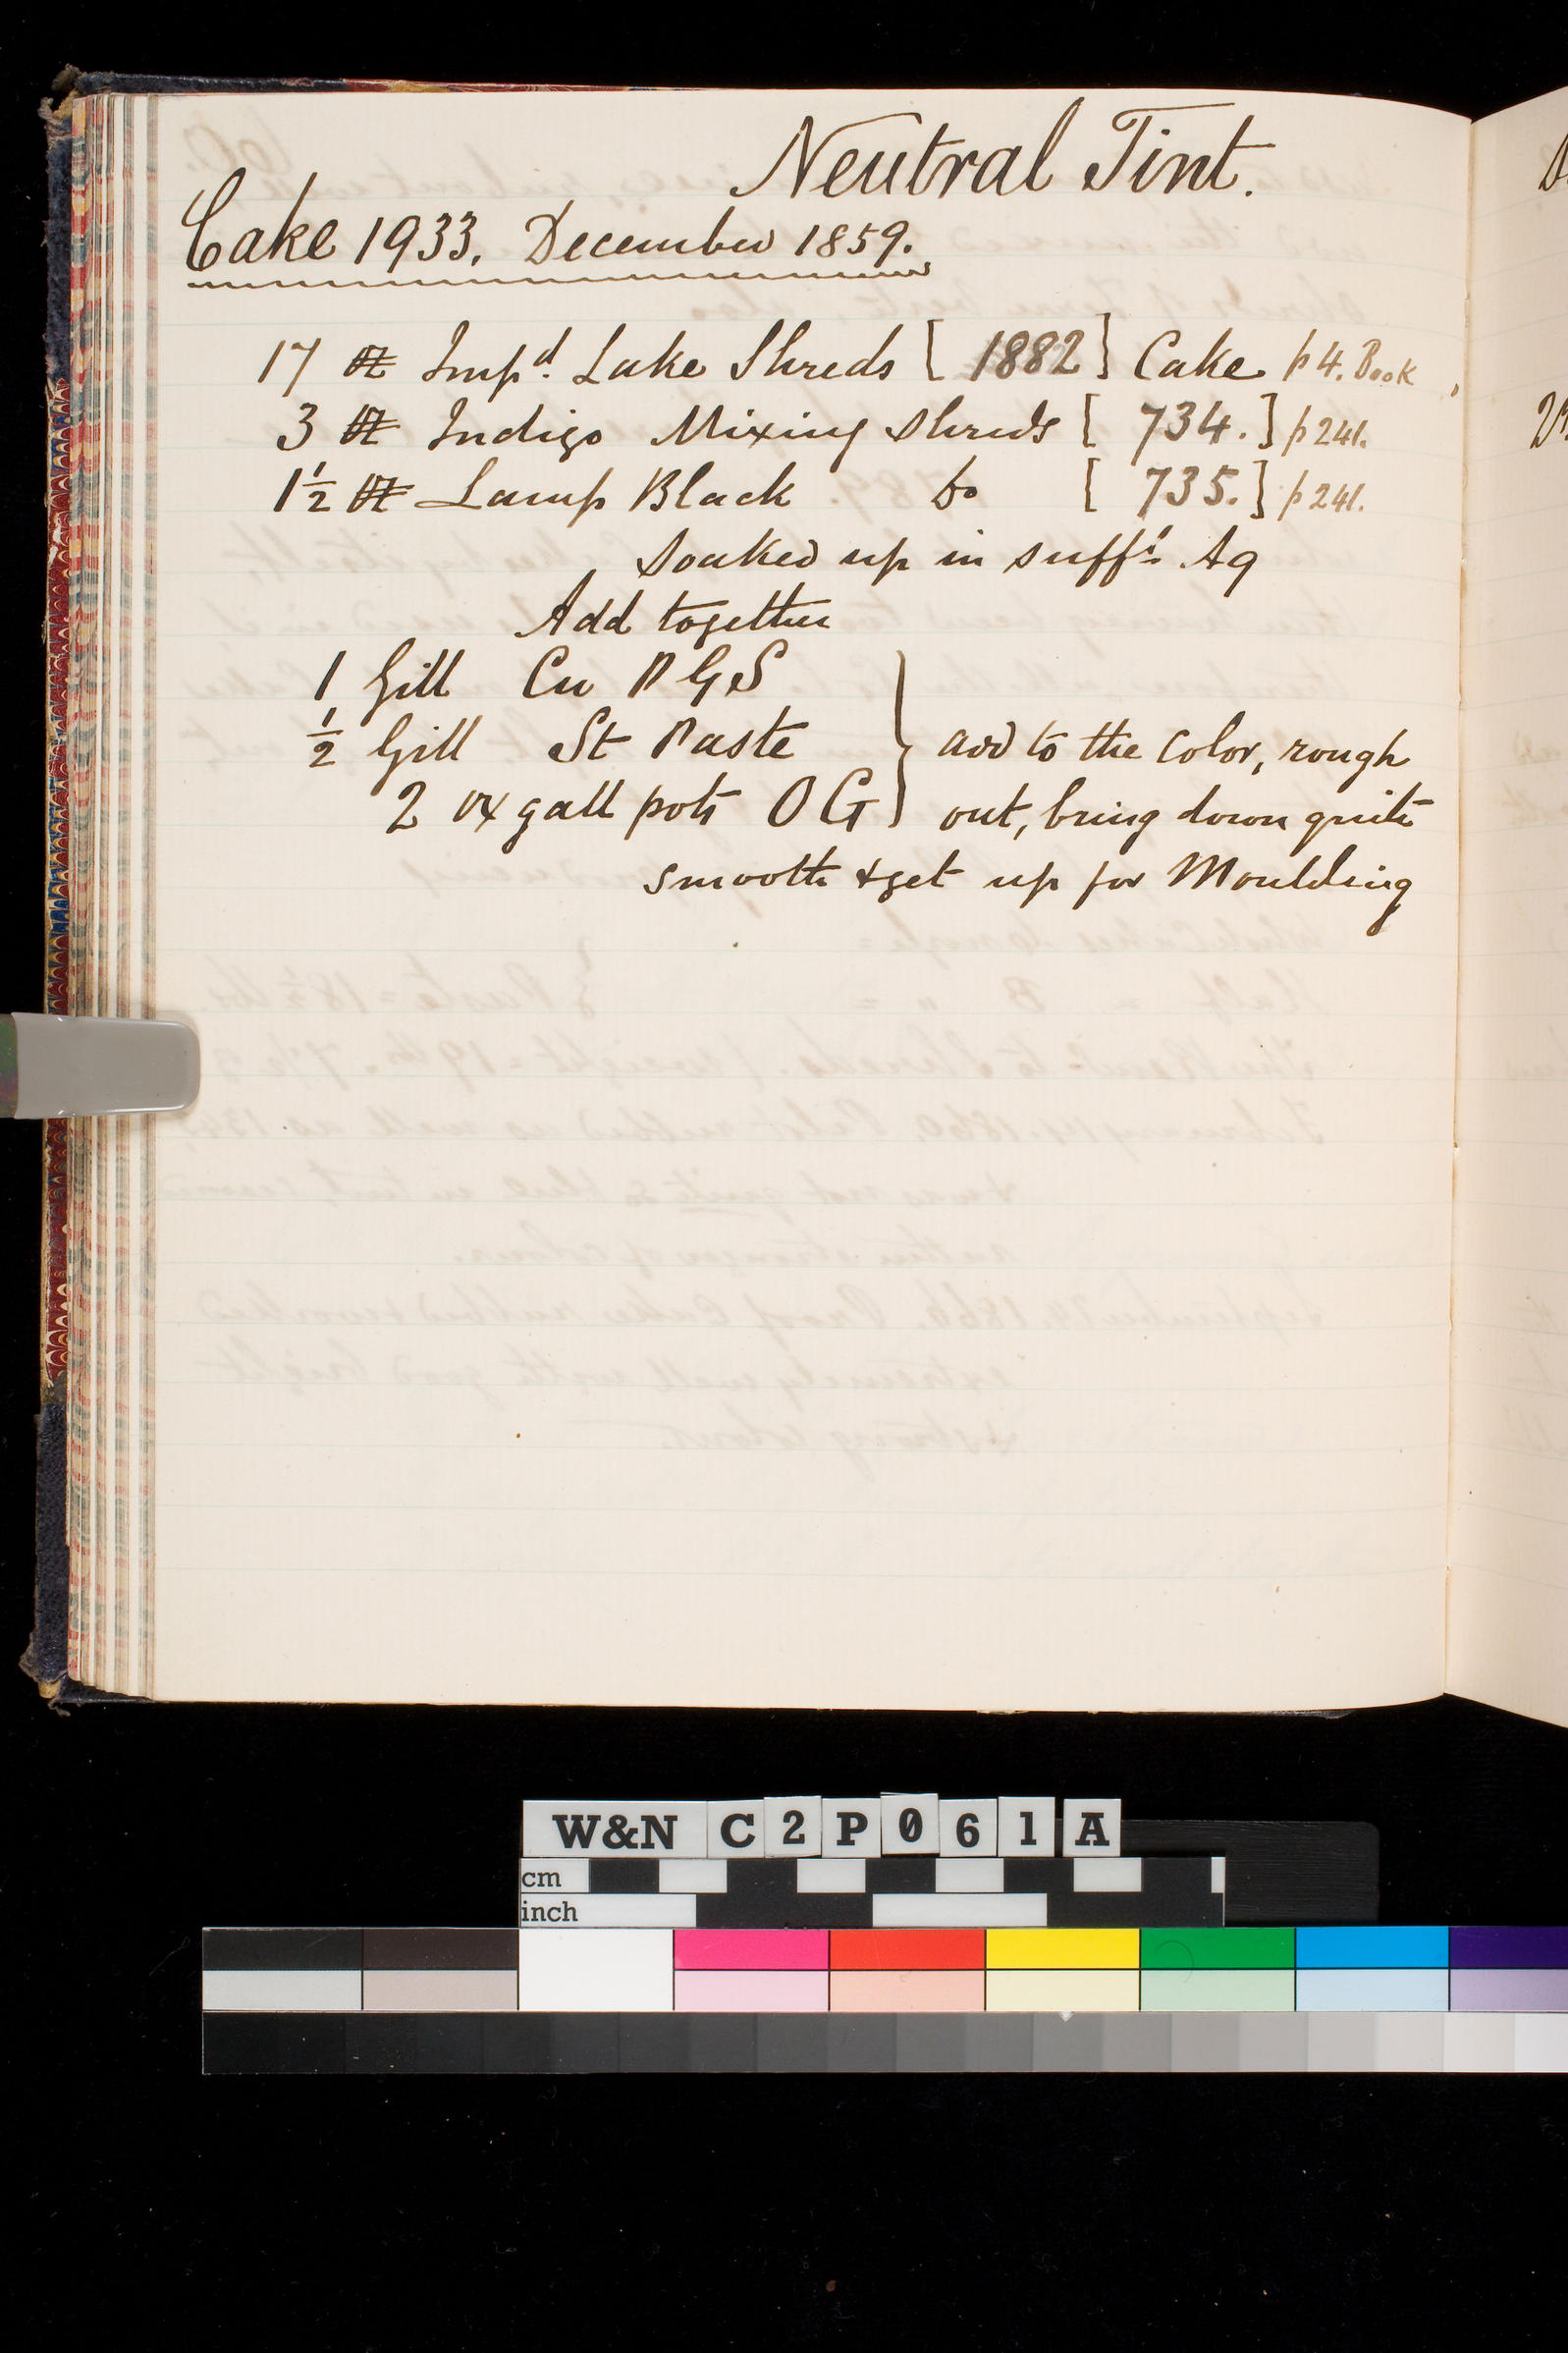 Neutral Tint.
Cake 1933. December 1859.
17 lb Impd. Lake Shreds [ 1882 ] Cake p 4. Book
3 lb Indigo Mixing Shreds [ 734. ] p 241.
1½ lb Lamp Black Do [ 735. ] p 241.
Soaked up in sufft Aq
Add together
1 Gill Cu P G S
½ Gill St Paste } add to the Color, rough
2 ox gall pots O G } out, bring down quite
smooth & get up for Moulding
W&N C2P061A
cm
inch